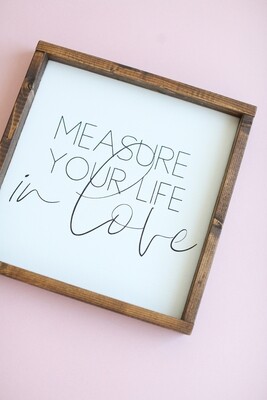 MEASURE
YOUR LIFE
in love